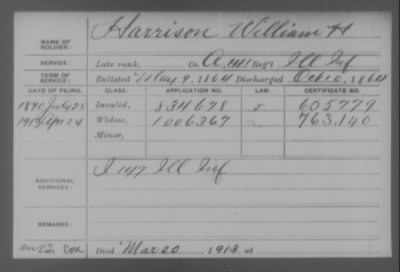 NAME OF SOLDIER: Harrison William H
SERVICE: Late rank, Co. A, 141 Reg't Ill Inf
TERM OF SERVICE: Enlisted May 9, 1864 Discharged Oct 10, 1864
DATE OF FILING. CLASS. APPLICATION NO. LAW. CERTIFICATE NO.
1890 July 28 Invalid, 834678 J 605779
1913 Apr 24 Widow, 1006367 763.140
Minor,
ADDITIONAL SERVICES: I 147 Ill Inf
REMARKS:
Died Mar 20, 1913, at